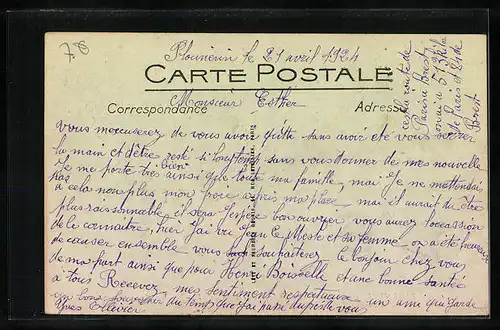 78
Plounerin le 21 avril 1924
CARTE POSTALE
Correspondance
Adresse
Monsieur Esther
c'est la route de
Paris a Brest
de Paris et de
Brest
vous mexcuserez de vous avoir quitté sans avoir été vous serrer
la main et d'être resté si longtemps sans vous donner de mes nouvelle
Je me porte très bien ainsi que toute ma famille, mai Je ne mettendai
pas
a cela non plus mon père a pris ma place mai il aurait du être
plus raisonnable, il sera Jespère bon ouvrier vous aurez l'occassion
de le connaitre, hier Jai vu Jean le Meste et sa femme on a été heureux
de causer ensemble vous souhaiterez le bonjour chez vous
de ma part ainsi que pour Henri et une bonne santé
à tous Recevez mes sentiment respectueuse un ami qui garde
un bon souvenir du temps que Jai passé auprès de vous
Yves Ollivier